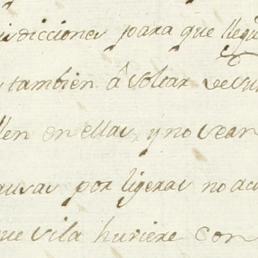 isdicciones para que lleg
tambien â soltar
llen en ellas, y no sean
ausas por ligeras no
que si la huviere con